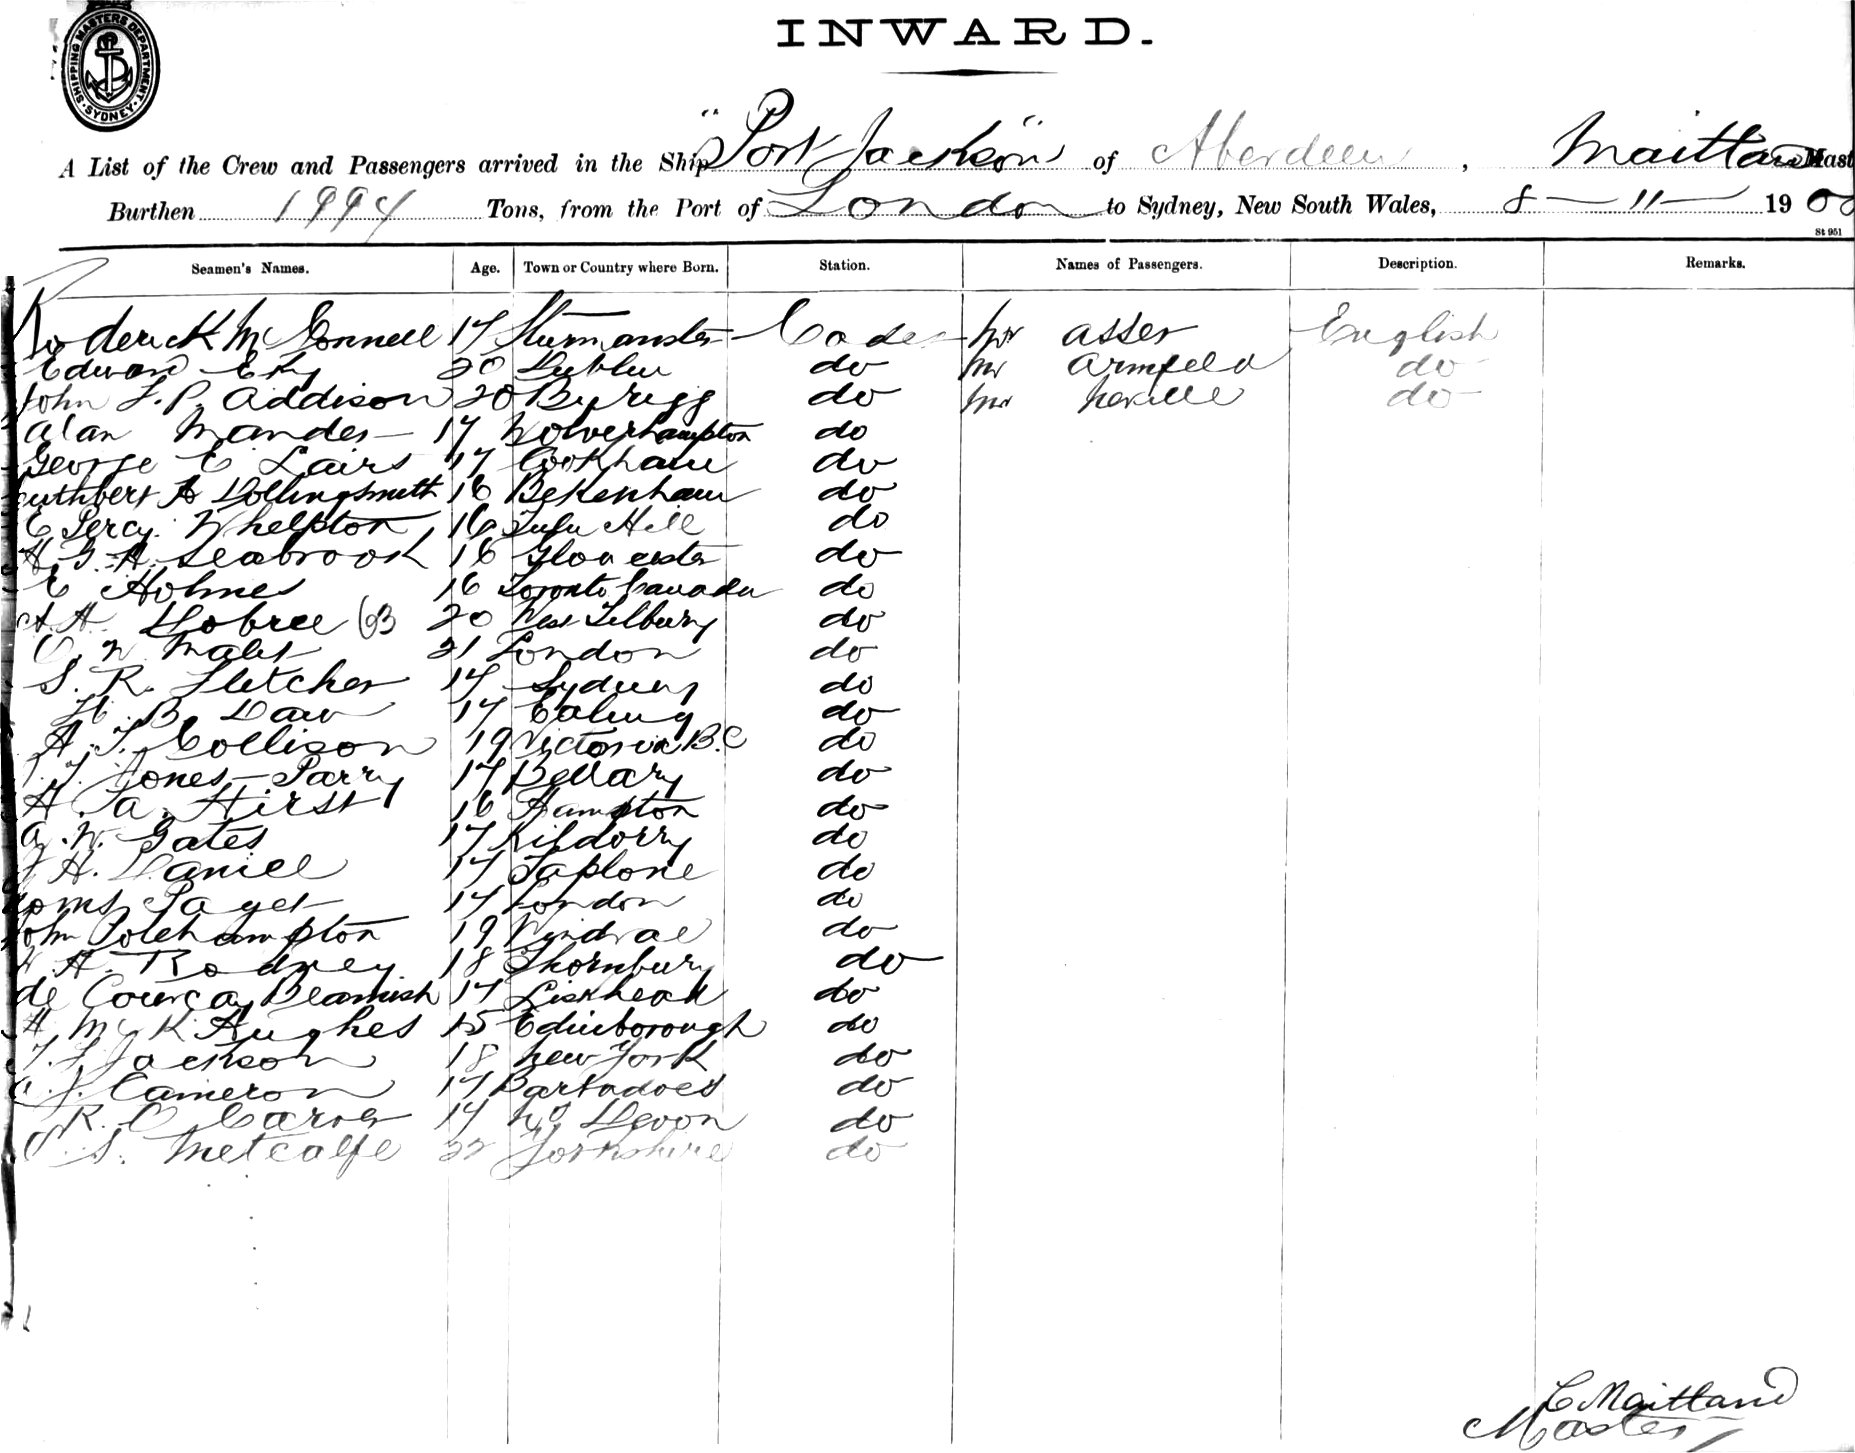 SHIPPING MASTERS DEPARTMENT SYDNEY
INWARD.
A List of the Crew and Passengers arrived in the Ship "Port Jackson" of Aberdeen, Maitland Mast
Burthen 1994 Tons, from the Port of London to Sydney, New South Wales, 8-11- 1900
St 951
Seamen's Names. Age. Town or Country where Born. Station. Names of Passengers. Description. Remarks.
Roderick McConnell 17 Cade Mr Asser English
Edward 20 Dublin do Mr Armfield do
John F. P. Addison 20 do Mr Neville do
Alan Mander 17 Wolverhampton do
George E Lairs 17 Cookham do
Cuthbert A Hollingsmith 16 Bekenham do
C Percy Whelpton 16 Tulu Hill do
H. G. A. Seabrook 16 Gloucester do
E Holmes 16 Toronto Canada do
A. H. Dobree (B 20 West Tilbury do
W Malet 21 London do
S. R. Fletcher 17 Sydney do
H. B. Daw 17 Ealing do
A. T. Collison 19 Victoria B.C do
Jones-Parry 17 Bellary do
H. A. Hirst 16 Hampton do
A. W. Gates 17 Kildorry do
H. Daniel 17 Taplone do
Paget 17 London do
John Polehampton 19 do
H. Rodney 18 Thornbury do
de Courcay Beamish 17 Liskheard do
H McK Hughes 15 Edinborough do
T. F. Jackson 18 New York do
J. Cameron 17 Barbadoes do
R. C Carver 17 No Devon do
S. Metcalfe 22 Yorkshire do
C Maitland
Master